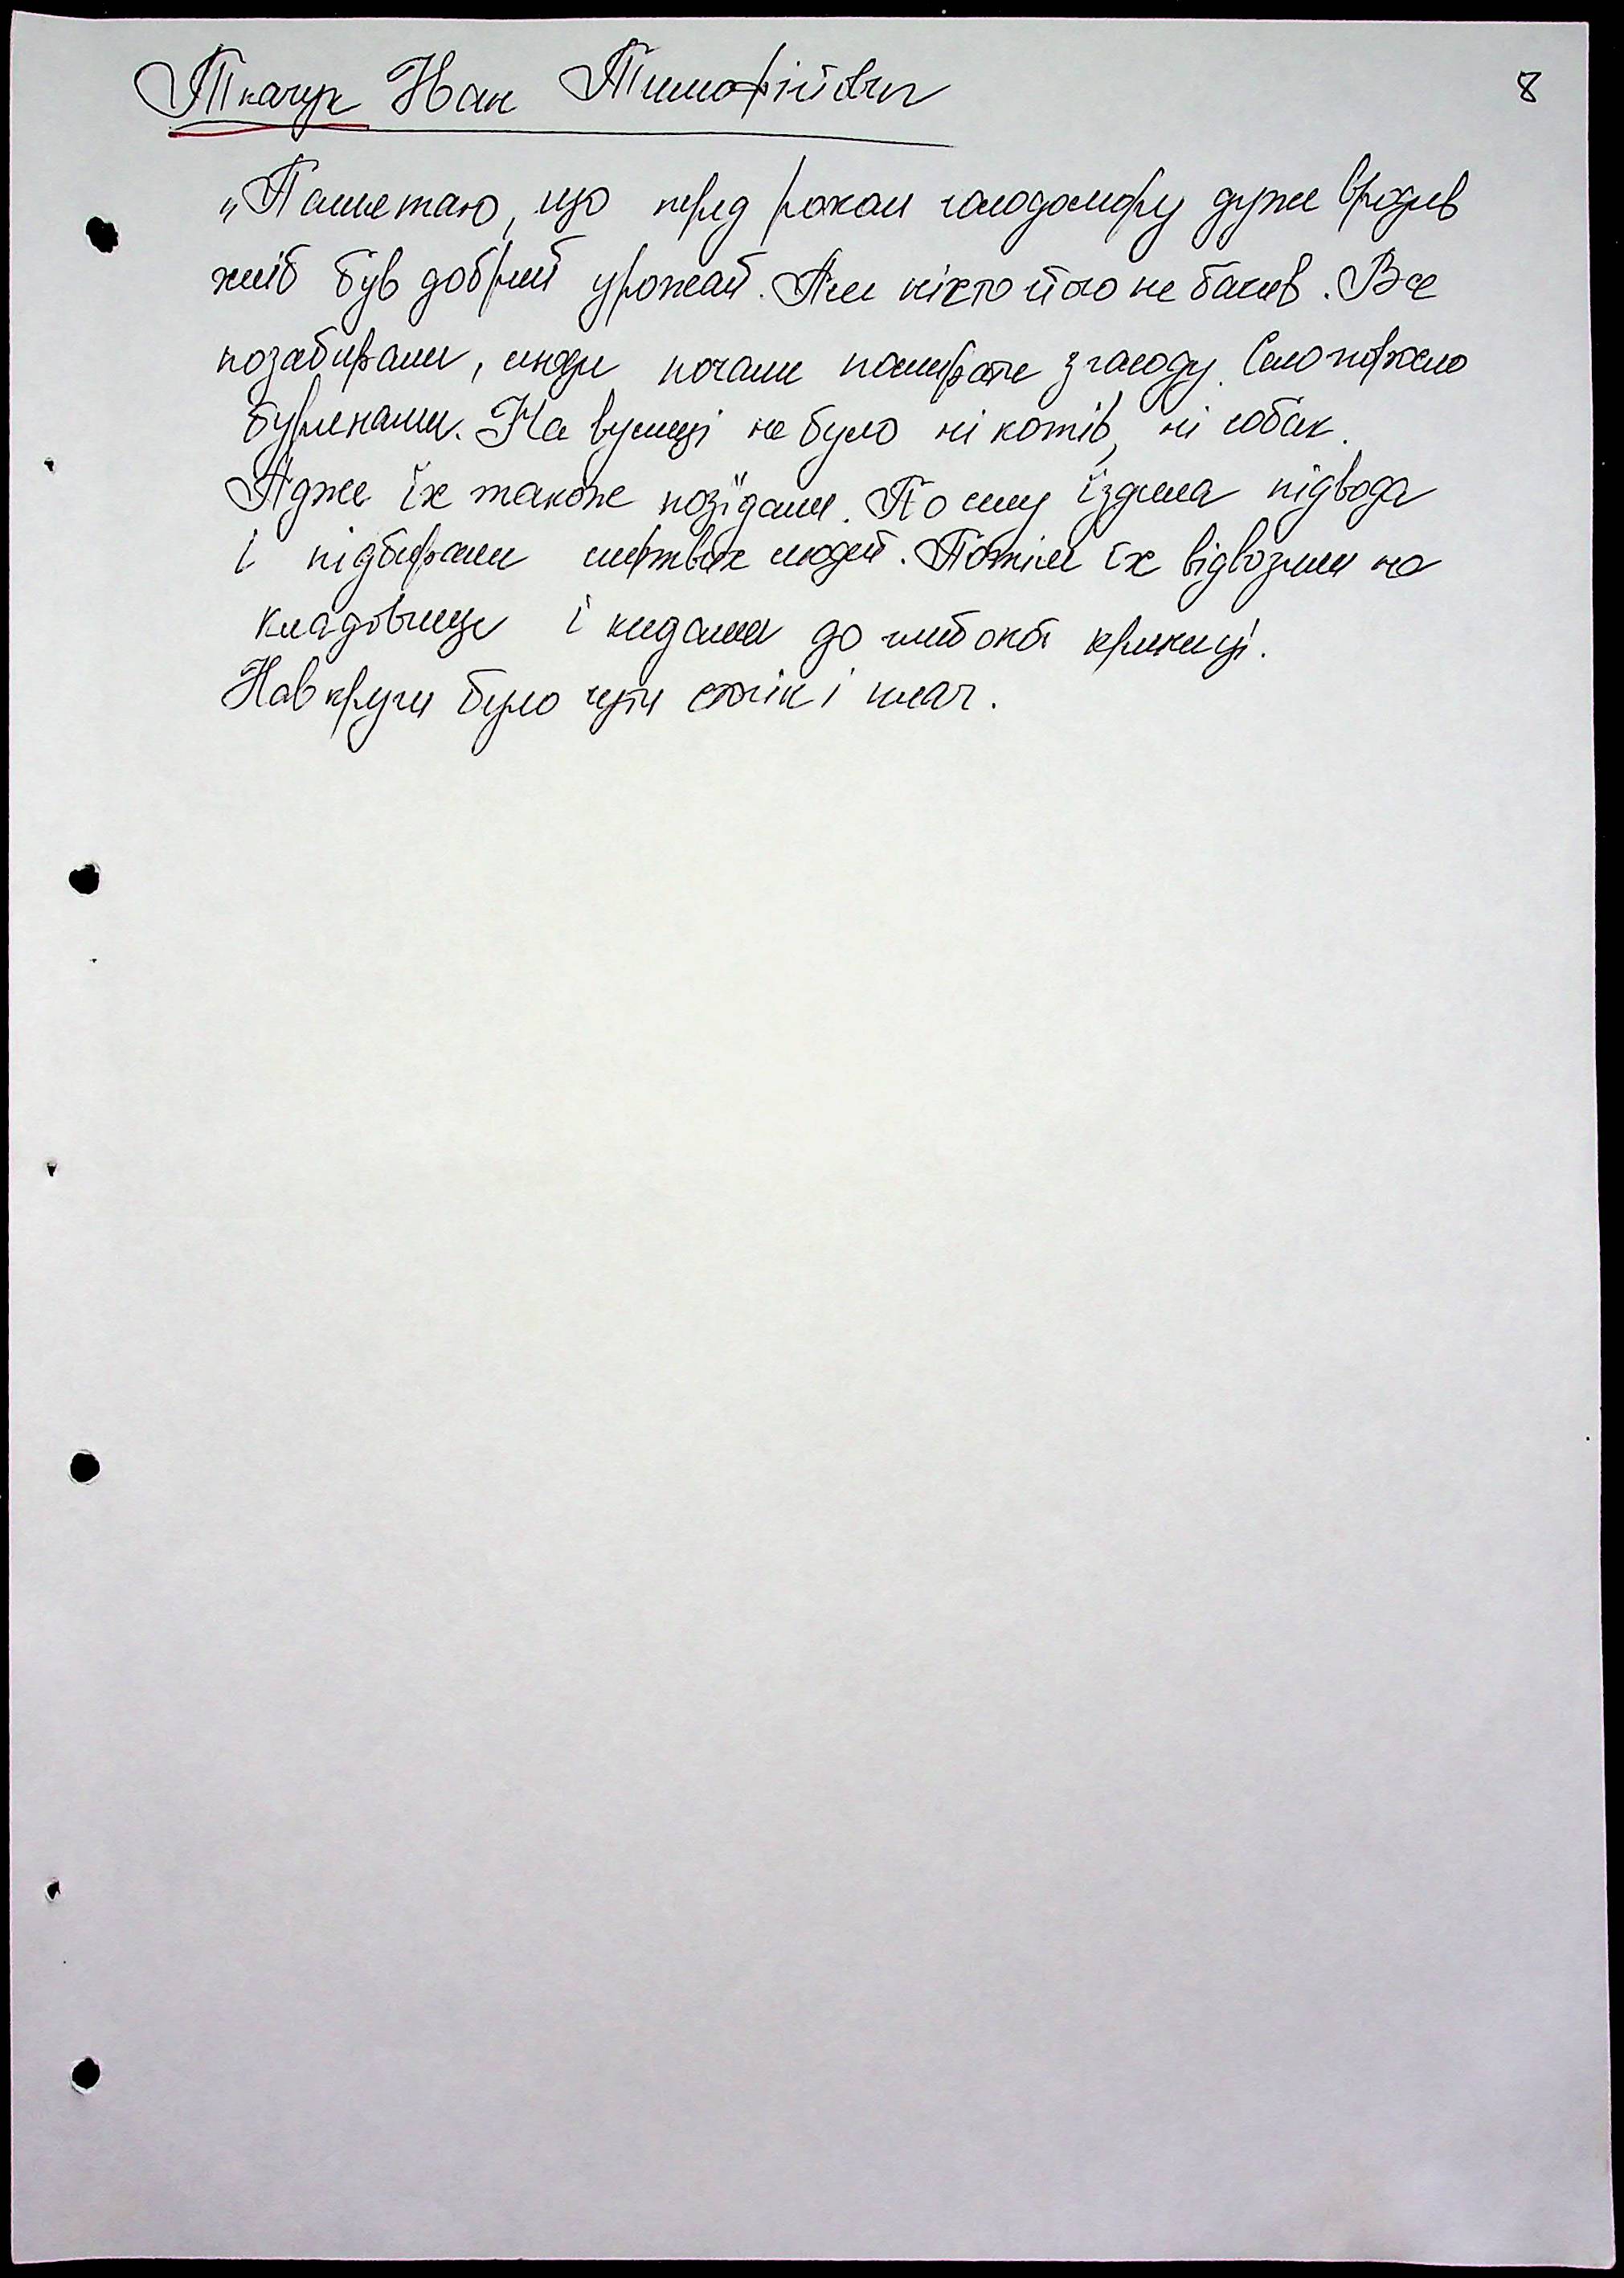 Ткачук Іван Тимофійович
8
„Памʼятаю, що перед роком голодомору дуже вродив
хліб був добрий урожай. Але ніхто його не бачив. Все
позабирали, люди почали помирати з голоду. Село поросло
бурянами. На вулиці не було ні котів, ні собак.
Адже їх також позїдали. По селу їздила підвода
і підбирали мертвих людей. Потім їх відвозили на
кладовище і кидали до глибокої криниці.
Навкруги було чути стогін і плач.